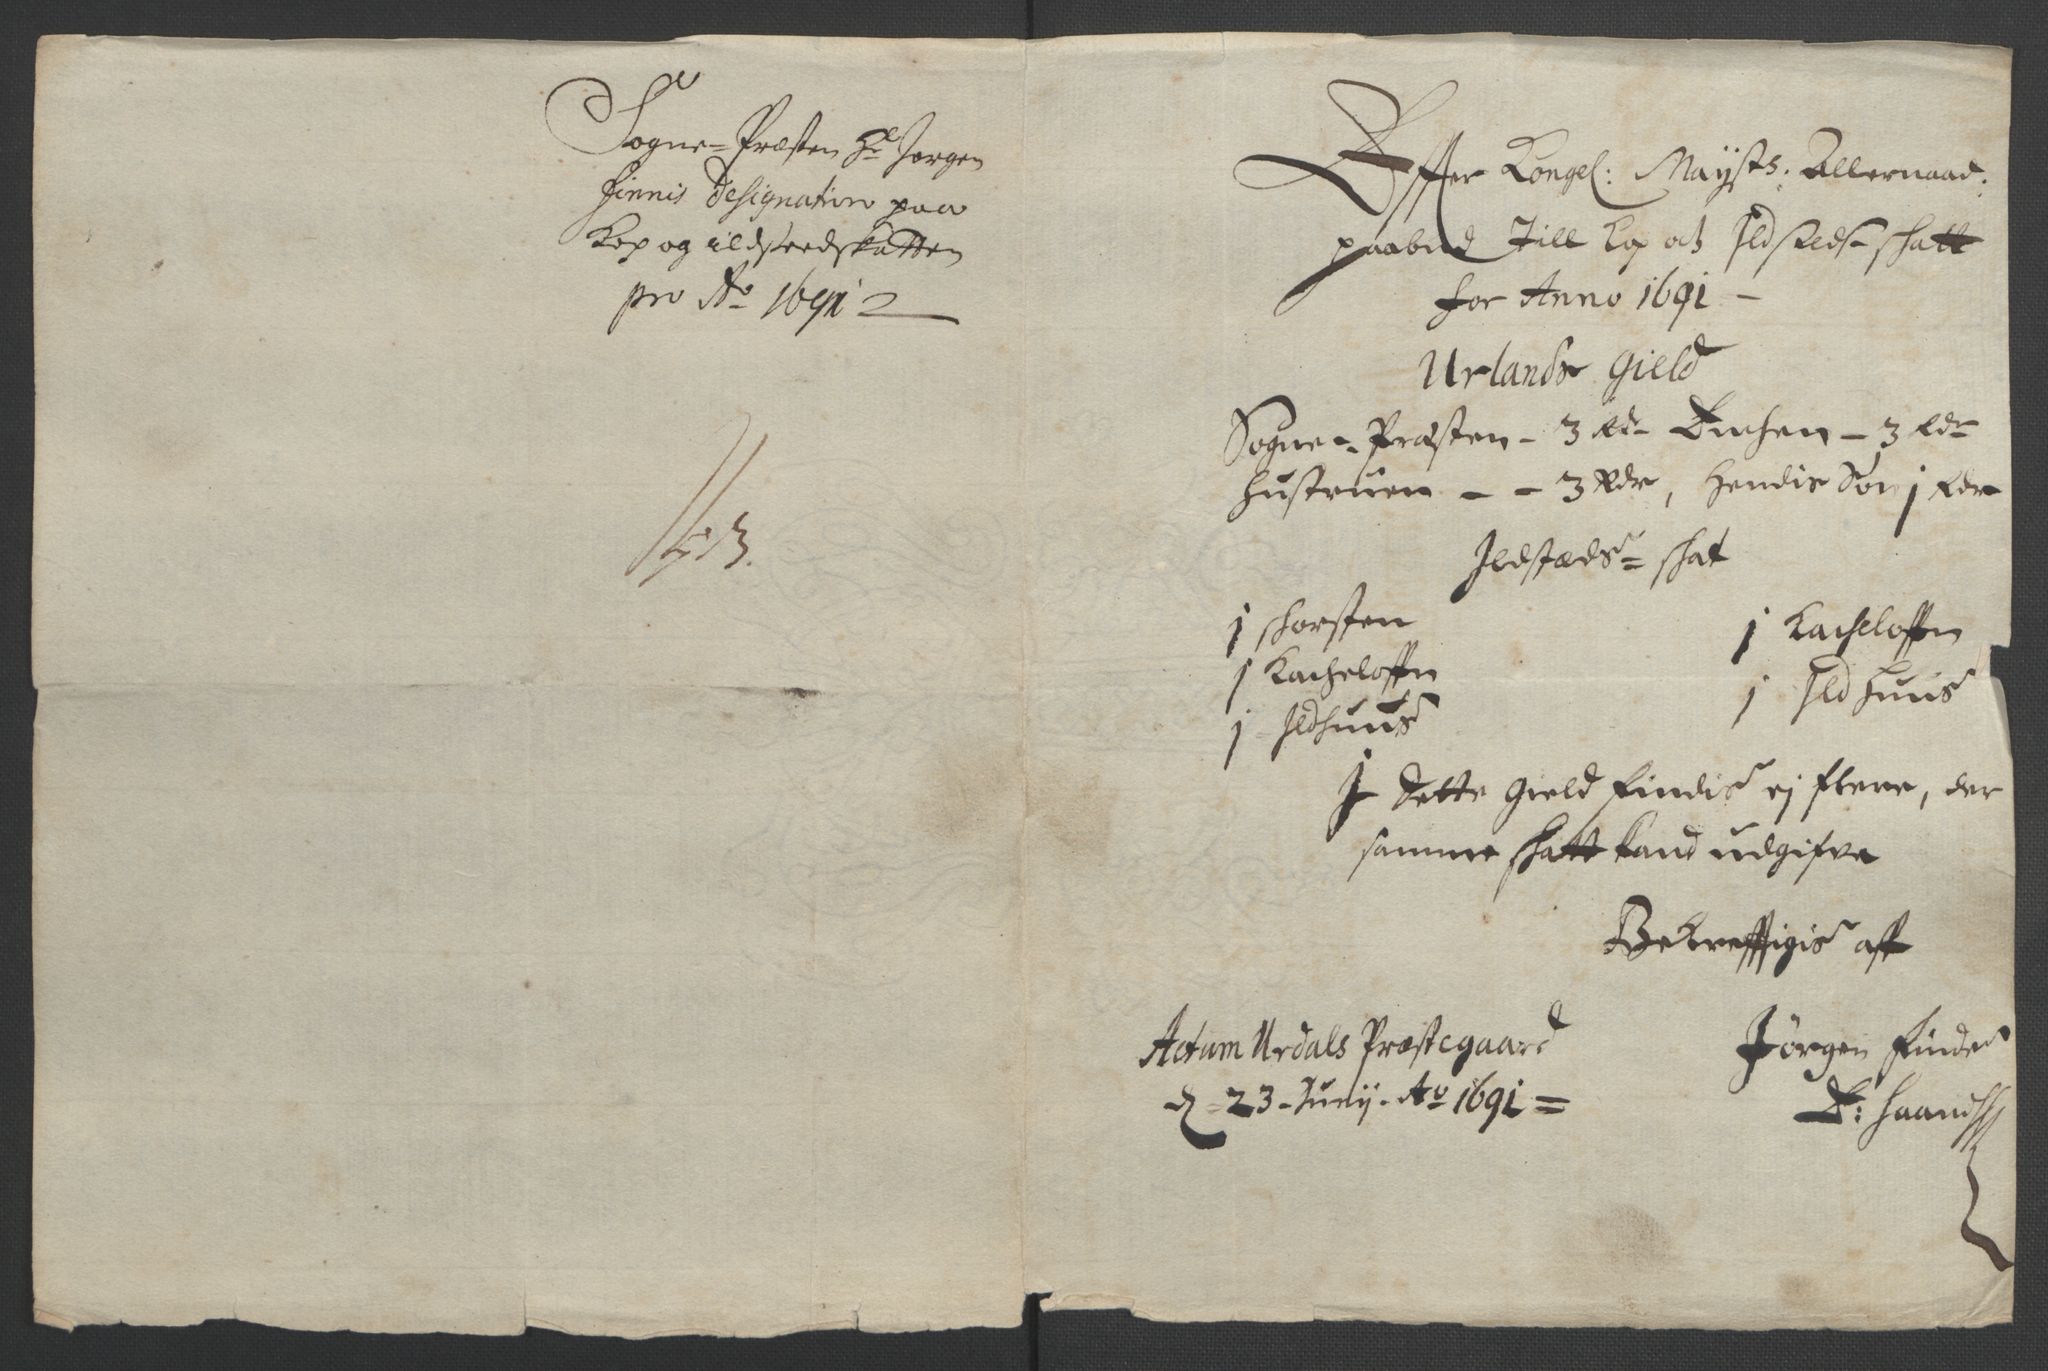 Sogne-Præsten Hr Jørgen
Finnis Designation paa
Kop og ildstedskatten
pro Ao 1691
13.
Effter Kongel: Mayts: Allernaad:
paabud Till Kop och Ildsteds-skatt
for Anno 1691 -
Urlands Gield
Sogne-Præsten - 3 Rdr Enchen - 3 Rdr
hustruen - - 3 Rdr, hendis Søn 1 Rdr
Ildstæds- skat
1 skorsten
1 Kacheloffn
1 Kacheloffn
1 Ild huus
1 Ildhuus
I dette Gield findis ej flere, der
samme skatt kand udgifve
Bekrefftigis aff
Actum Urdals Præstegaard
d 23 Junij Ao 1691 =
Jørgen Finde
E: haand